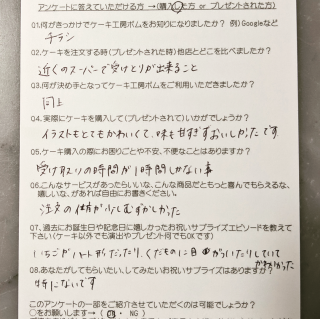 アンケートに答えていただける方 → (購入した方 or プレゼントされた方)
Q1.何がきっかけでケーキ工房ボムをお知りになりましたか？ 例)Googleなど
チラシ
Q2.ケーキを注文する時(プレゼントされた時)他店とどこを比べましたか？
近くのスーパーで受けとりが出来ること
Q3.何が決め手となってケーキ工房ボムをご利用いただきましたか？
同上
Q4.実際にケーキを購入して(プレゼントされて)いかがでしょうか？
イラストもとてもかわいくて、味も甘すぎずおいしかったです
Q5.ケーキ購入の際にお困りごとや不安、不便なことはありますか？
受け取りの時間が1時間しかない事
Q6.こんなサービスがあったらいいな、こんな商品だともっと喜んでもらえるな、
嬉しいな、があれば自由にお書きください。
注文の仕方が少しむずかしかった
Q7.過去にお誕生日や記念日に嬉しかったお祝いサプライズエピソードを教えて
下さい(ケーキ以外でも演出やプレゼント何でもOKです)
いちごがハート形だったり、くだものに目がついたりしていて
かわいかった
Q8.あなたがしてもらいたい、してみたいお祝いサプライズはありますか？
特にないです
このアンケートの一部をご紹介させていただくのは可能でしょうか？
○をお願いします→ ( OK ・ NG )